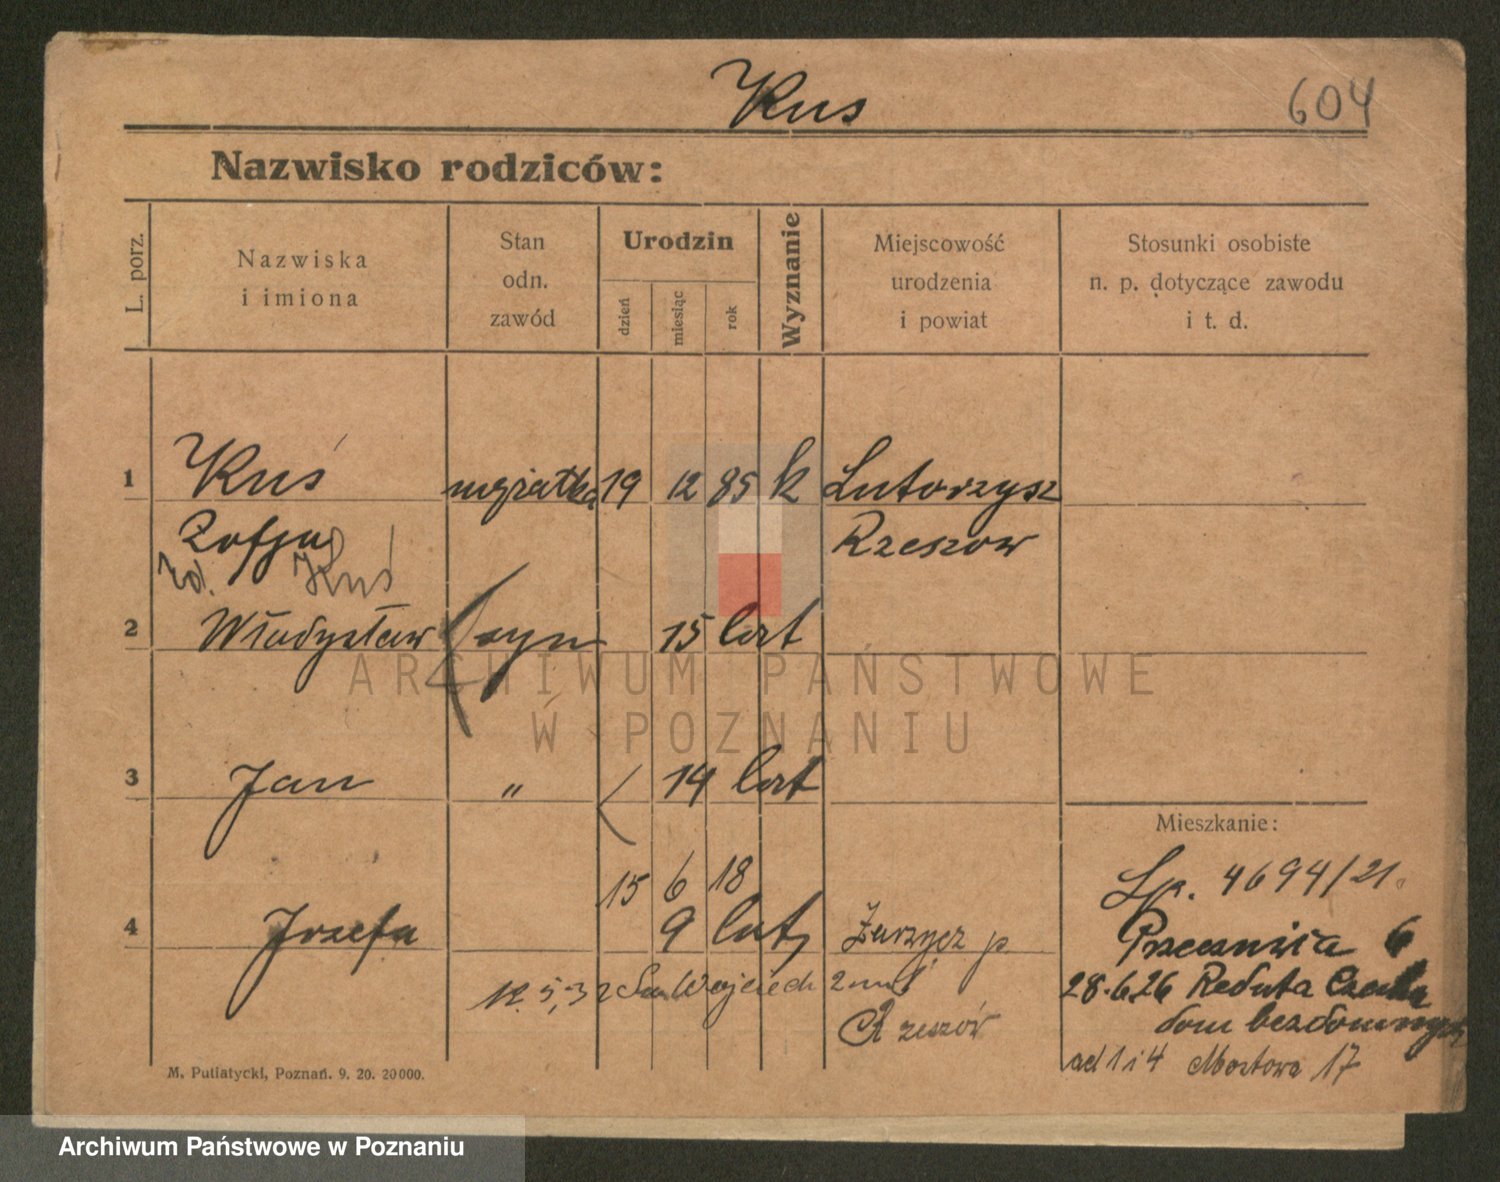 Kus
604
Nazwisko rodziców:
L. porz.
Nazwiska
i imiona
Stan
odn.
zawód
Urodzin
dzień
miesiąc
rok
Wyznanie
Miejscowość
urodzenia
i powiat
Stosunki osobiste
n. p. dotyczące zawodu
i t. d.
1 Kuś 19 12 85 k Lutorzysz
Zofja Rzeszow
Kuś
2 Władysław syn 15 lat
ARCHIWUM PAŃSTWOWE
W POZNANIU
3 Jan " 14 lat
Mieszkanie:
15 6 18
4694/21
4 Józefa 9 lat
6
28.6.26 Reduta
12.5.32 Wojciech
dom bezdomnych
Rzeszów
ad 1 i 4 Mostowa 17
M. Putiatycki, Poznań. 9. 20. 20000.
Archiwum Państwowe w Poznaniu